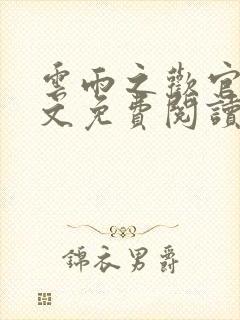 雲雨之歡官
文免費閱讀
錦衣男爵